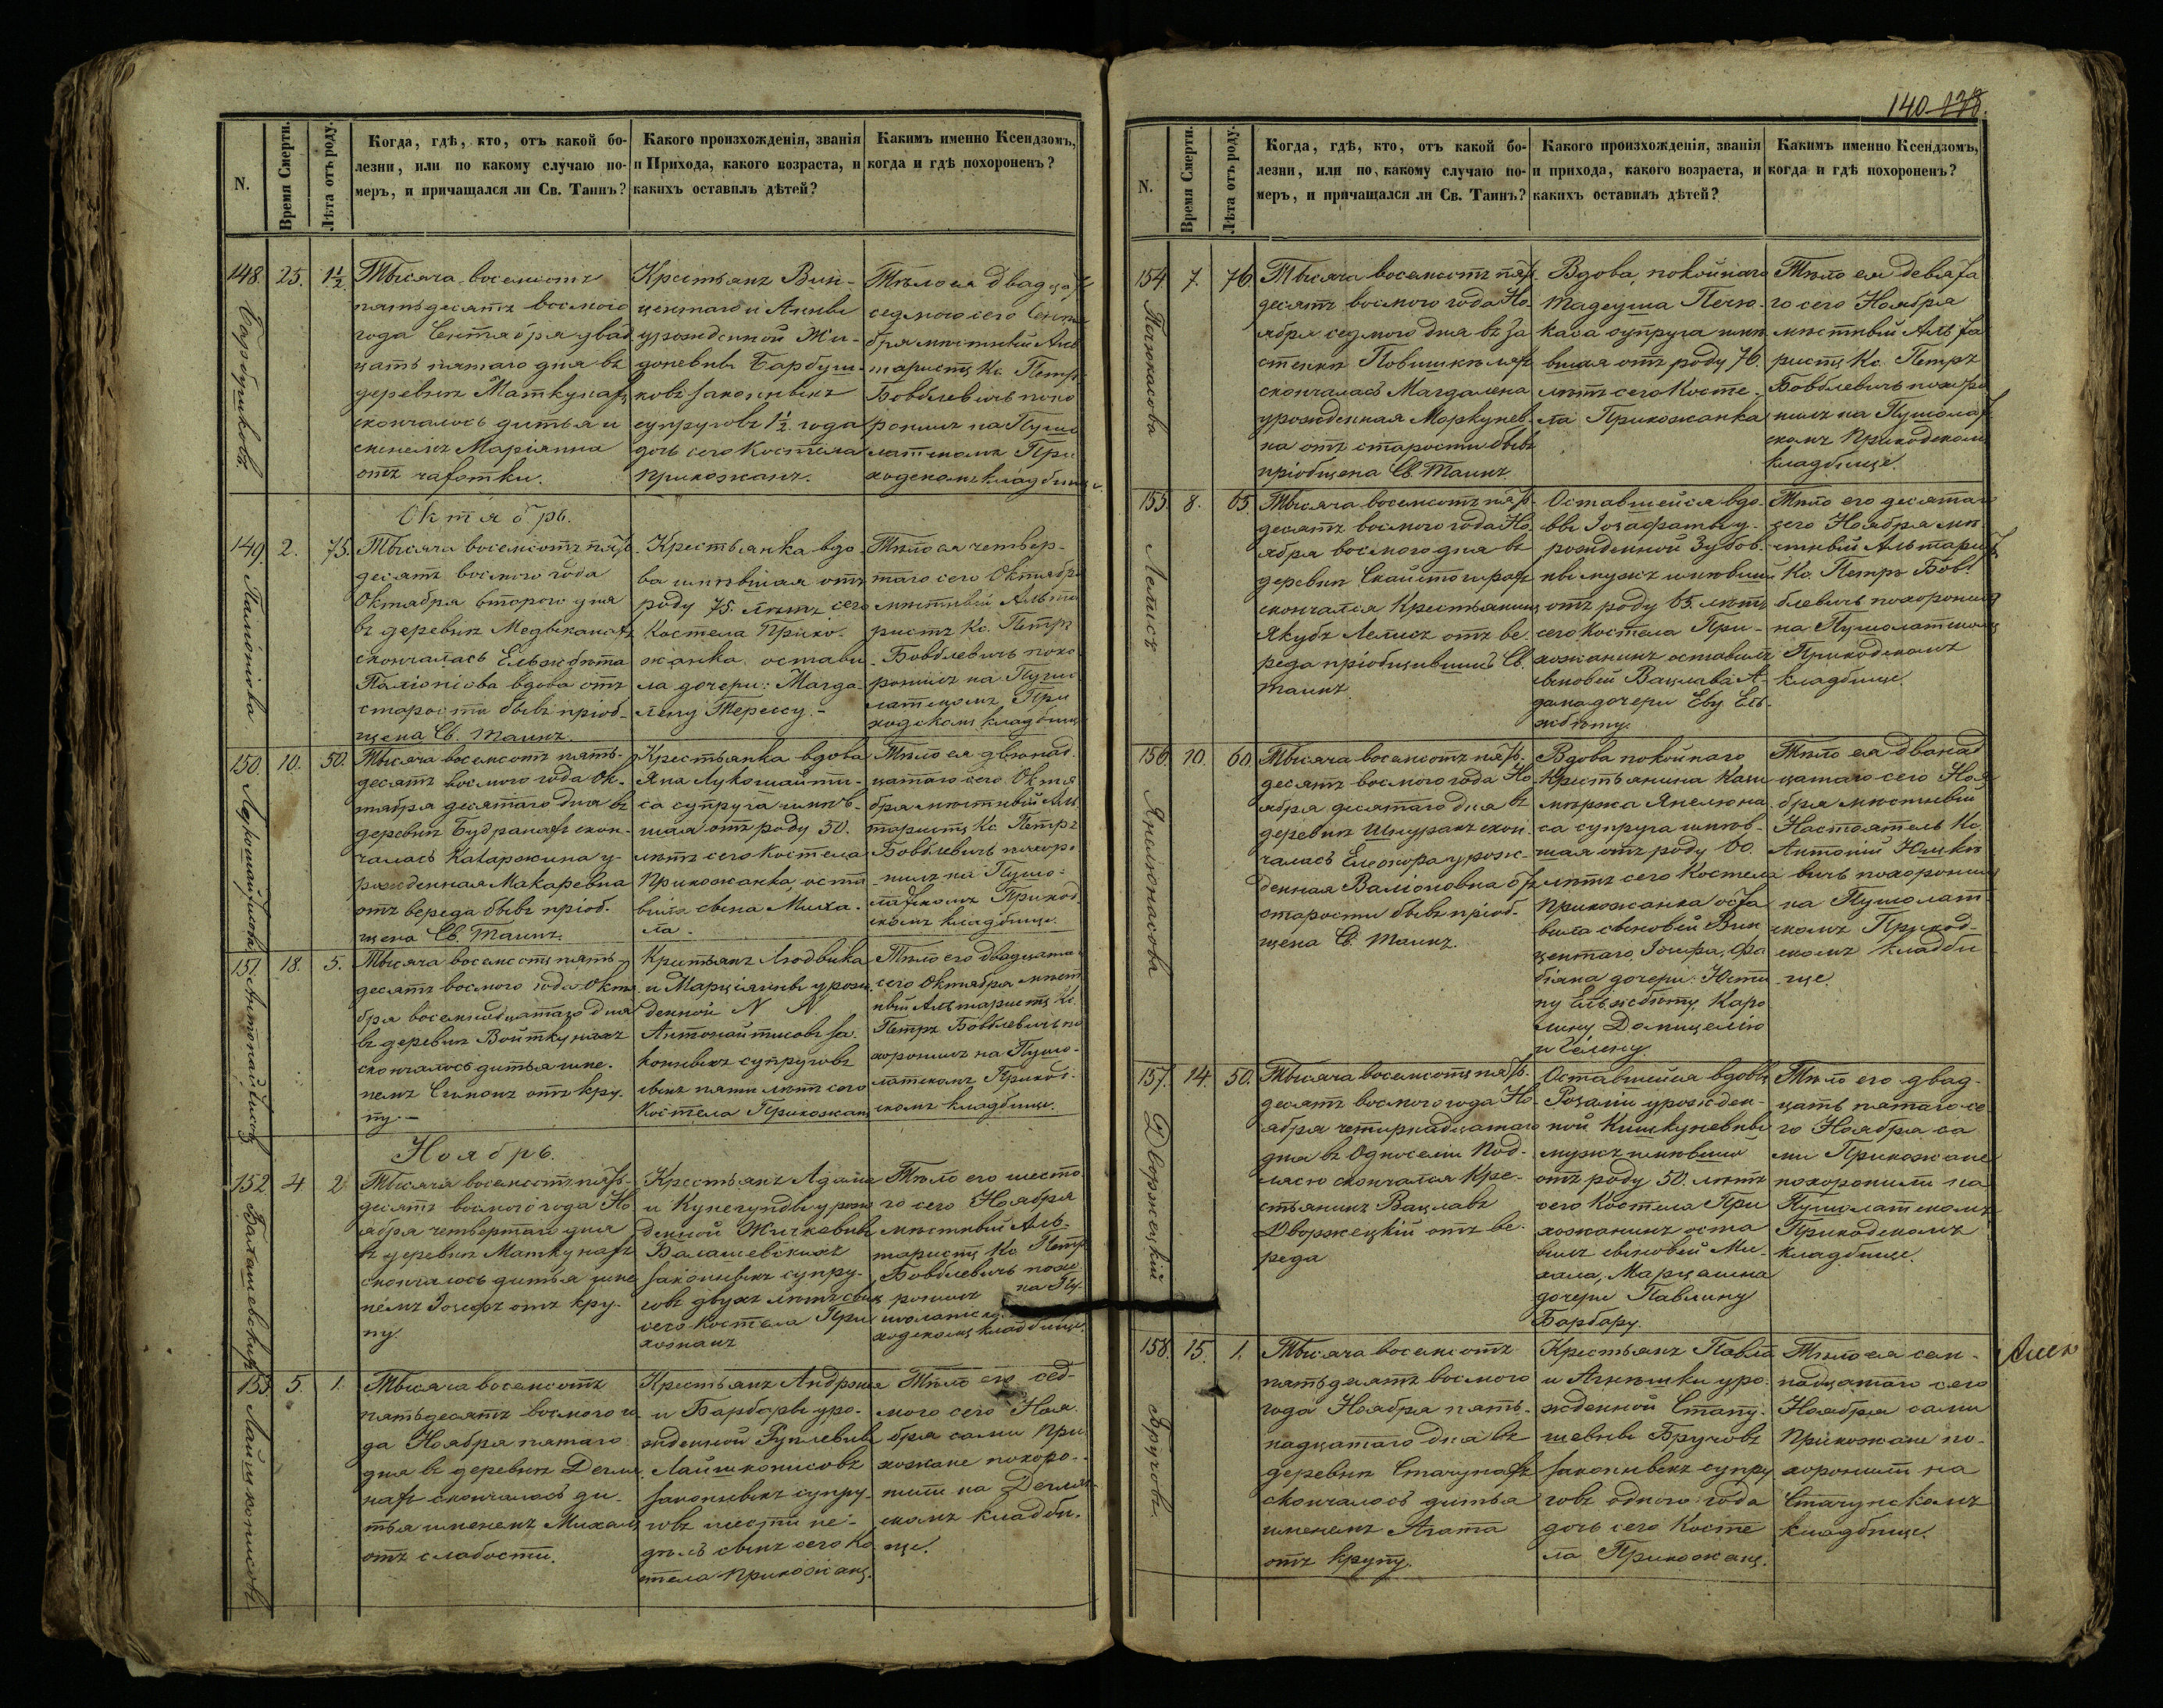 N.
Время Смерти.
Лѣта отъ роду.
Когда, гдѣ, кто, отъ какой бо-
лезни, или по какому случаю по-
меръ, и причащался ли Св. Таинъ?
Какого произхожденія, званія
и Прихода, какого возраста, и
какихъ оставилъ дѣтей?
Какимъ именно Ксендзомъ,
когда и гдѣ похороненъ?
148. 25. 1½
Тысяча восемсотъ
пятьдесятъ восмого
года Сентября двад
цать пятаго дня въ
деревнѣ
скончалось дитья и
менемъ Маріянна
Крестьянъ Вин-
центаго и Анны
урожденной Жи-
довѣ законныхъ
супруговъ 1½ года
дочь сего Костела
прихожанъ.
Тѣло ея двадцать
седмого сего Сентя
бря мѣстный Аль
таристъ Кс. Петръ
Бовблевичь похо
ронилъ на Пушо
латскомъ При
ходскомъ кладбище.
Октябрь.
149. 2. 75.
Тысяча восемсотъ пять
десятъ восмого года
Октября второго дня
въ деревнѣ
скончалась Ельжбѣта
вдова отъ
старости бывъ пріоб-
щена Св. Таинъ.
Крестьянка вдо
ва имѣвшая отъ
роду 75. лѣтъ сего
Костела Прихо-
жанка остави
ла дочери: Магда-
лену Терессу.-
Тѣло ея четвер-
таго сего Октября
мѣстный Альта
ристъ Кс. Петръ
Бовблевичь похо
ронилъ на Пушо
латскомъ При
ходскомъ кладбище
150. 10. 50.
Тысяча восемсотъ пять-
десятъ восмого года Ок-
тября десятаго дня въ
деревнѣ скон-
чалась Катаржина у-
рожденная Макаревна
отъ вереда бывъ пріоб-
щена Св. Таинъ.
Крестьянка вдова
Яна Лукошайти-
са супруга имѣв-
шая отъ роду 50.
лѣтъ сего Костела
Прихожанка оста
вила сына Миха-
ла.
Тѣло ея двѣнад
цатаго сего Октя
бря мѣстный Аль
таристъ Кс. Петръ
Бовблевичь похоро
нилъ на Пушо-
латскомъ Приход
скомъ кладбище.
151. 18. 5.
Тысяча восемсотъ пять
десятъ восмого года Октя
бря восемнадцатаго дня
въ деревнѣ Войткунахъ
скончалось дитья име-
немъ Симонъ отъ кру-
пу.—
Крестьянъ Людвика
и Марціянны урож
денной N N
Антонайтисовъ за
конныхъ супруговъ
сынъ пяти лѣтъ сего
Костела Прихожанъ
Тѣло его двадцата
сего Октября мѣст
ный Альтаристъ Кс.
Петръ Бовблевичь по
хоронилъ на Пушо-
латскомъ Приход-
скомъ кладбище.
Ноябрь.
152 4 2
Тысяча восемсотъ пять-
десятъ восмого года Но
ября четвертаго дня
въ деревнѣ
скончалось дитья име
немъ Іозефъ отъ кру-
пу.
Крестьянъ Адама
и Кунегунды урож
денной
законныхъ супру-
говъ двухъ лѣтъ сынъ
сего Костела При
хожанъ
Тѣло его шесто
го сего Ноября
мѣстный Аль-
таристъ Кс Петръ
Бовблевичь похо
ронилъ на Пу-
шолатскомъ
ходскомъ кладбище.
153 5. 1.
Тысяча восемсотъ
пятьдесятъ восмого го
да Ноября пятаго
дня въ деревнѣ
скончалось ди-
тья именемъ Михалъ
отъ слабости.
Крестьянъ Андрея
и Барбары уро-
жденной
Лайшконисовъ
законныхъ супру-
говъ шести не-
дѣль сынъ сего Ко
стела Прихожанъ.
Тѣло его сед-
мого сего Ноя
бря сами При
хожане похоро-
нили на
скомъ кладби-
ще.
140
N.
Время Смерти.
Лѣта отъ роду.
Когда, гдѣ, кто, отъ какой бо-
лезни, или по какому случаю по-
меръ, и причащался ли Св. Таинъ?
Какого произхожденія, званія
и прихода, какого возраста, и
какихъ оставилъ дѣтей?
Какимъ именно Ксендзомъ,
когда и гдѣ похороненъ?
154 7. 76
Тысяча восемсотъ пять
десятъ восмого года Но-
ября седмого дня въ за
стенкѣ
скончалась Магдалена
урожденная Моркунев-
на отъ старости бывъ
пріобщена Св. Таинъ.
Вдова покойнаго
Тадеуша
супруга имѣ
вшая отъ роду 76.
лѣтъ сего Косте
ла Прихожанка
Тѣло ея девята
го сего Ноября
мѣстный Альта
ристъ Кс. Петръ
Бовблевичь похоро
нилъ на Пушолат
скомъ Приходскомъ
кладбище.
155 8. 65
Тысяча восемсотъ пять
десятъ восмого года Но
ября восмого дня въ
деревнѣ
скончался Крестьянинъ
Якубъ Лелисъ отъ ве
реда пріобщившись Св.
Таинъ
Оставшейся вдо-
вы Іозафаты у-
рожденной Зубов-
ны мужъ имѣвшій
отъ роду 65. лѣтъ
сего Костела При-
хожанинъ оставилъ
сыновей Вацлава А-
дама дочери Еву Ель-
жбѣту.
Тѣло его десята
сего Ноября мѣ
стный Альтарист
Кс. Петръ Бов
блевичь похоронилъ
на Пушолатскомъ
Приходскомъ
кладбище.
156 10. 60
Тысяча восемсотъ пять
десятъ восмого года Но
ября десятаго дня въ
деревнѣ Шнуракъ скон
чалась Елеонора урож-
денная отъ
старости бывъ пріоб-
щена Св. Таинъ.
Вдова покойнаго
Крестьянина Кази
мѣржа Янелюна
са супруга имѣв-
шая отъ роду 60.
лѣтъ сего Костела
Прихожанка оста
вила сыновей Вин
центаго, Іозефа, Фа
біяна дочери: Юсти
ну Ельжбѣту, Каро
лину, Домицелію
и Гелену
Тѣло ея дванад
цатаго сего Ноя
бря мѣстный
Настоятель Кс.
Антоній Юшке
вичь похоронилъ
на Пушолат
скомъ Приход-
скомъ кладби
ще.
157. 14. 50.
Тысяча восемсотъ пять-
десятъ восмого года Но
ября четырнадцатаго
дня въ Односеліи Под-
скончался Кре-
стьянинъ Вацлавъ
Дворжецкій отъ ве-
реда
Оставшейся вдовы
Розаліи урожден-
ной Кишкуневны
мужъ имѣвшій
отъ роду 50. лѣтъ
сего Костела При
хожанинъ оста
вилъ сыновей Ми-
хала, Марцелина
дочери Павлину
Барбару.
Тѣло его двад-
цать пятаго се
го Ноября са
ми Прихожане
похоронили на
Пушолатскомъ
Приходскомъ
кладбище.
158. 15. 1.
Тысяча восемсотъ
пятьдесятъ восмого
года Ноября пять-
надцатаго дня въ
деревнѣ Стачунахъ
скончалось дитья
именемъ Агата
отъ крупу.
Крестьянъ Павла
и Агнѣшки уро-
жденной
Бруговъ
законныхъ супру
говъ одного года
дочь сего Косте
ла Прихожанъ.
Тѣло ея сем-
надцатаго сего
Ноября сами
Прихожане по-
хоронили на
Стачунскомъ
кладбище.